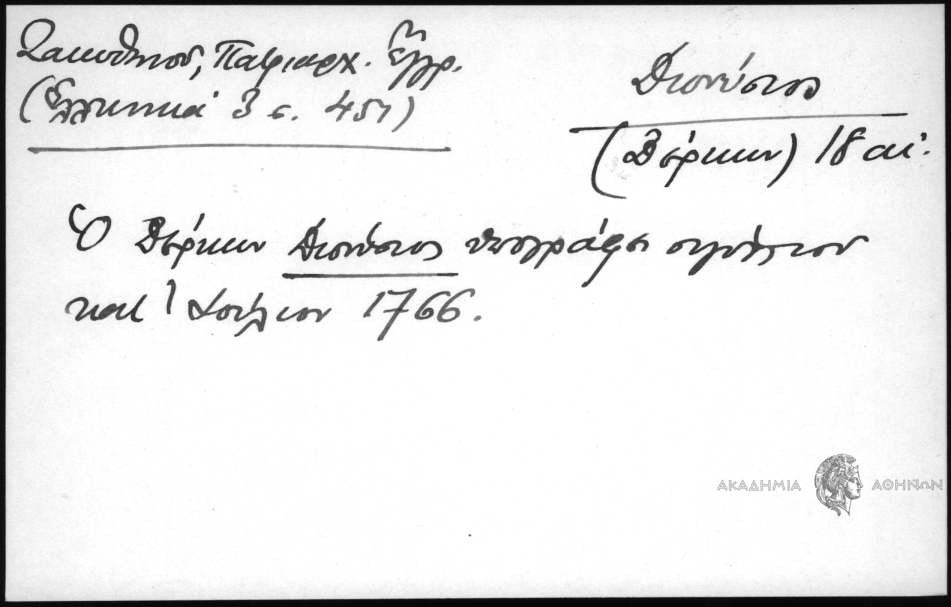 Ζακυθηνοῦ, Πατριαρχ. Ἔγγρ.
(Ἑλληνικά 3 σ. 451)
Διονύσιος
(Δέρκων) 18 αἰ.
Ὁ Δέρκων Διονύσιος ὑπογράφει σιγίλλιον
κατ' Ἰούλιον 1766.
ΑΚΑΔΗΜΙΑ ΑΘΗΝΩΝ